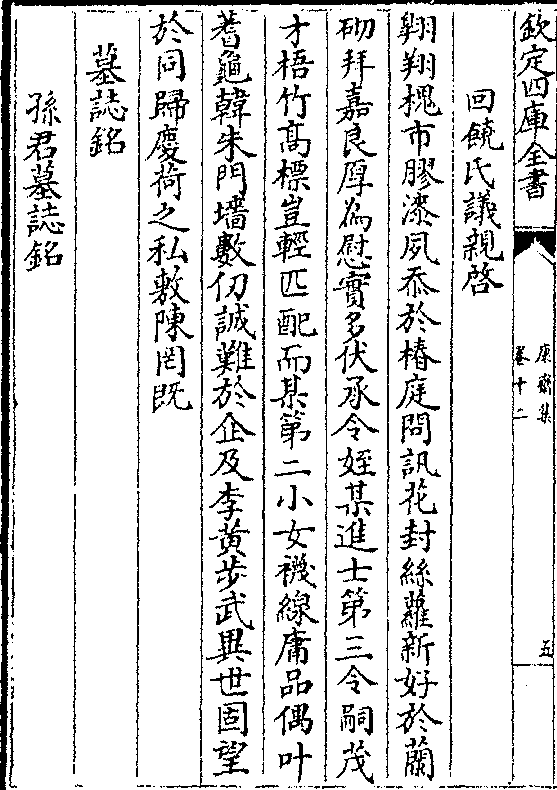 欽定四庫全書
康齋集
卷十二
五
回饒氏議親啓
翱翔槐市膠漆夙忝於椿庭問訊花封絲蘿新好於蘭
砌拜嘉良厚為慰實多伏承令姪某進士第三令嗣茂
才梧竹髙標豈輕匹配而某第二小女襪線庸品偶叶
蓍龜韓朱門墻數仞誠難於企及李黄步武異世固望
於同歸慶荷之私敷陳罔既
墓誌銘
孫君墓誌銘